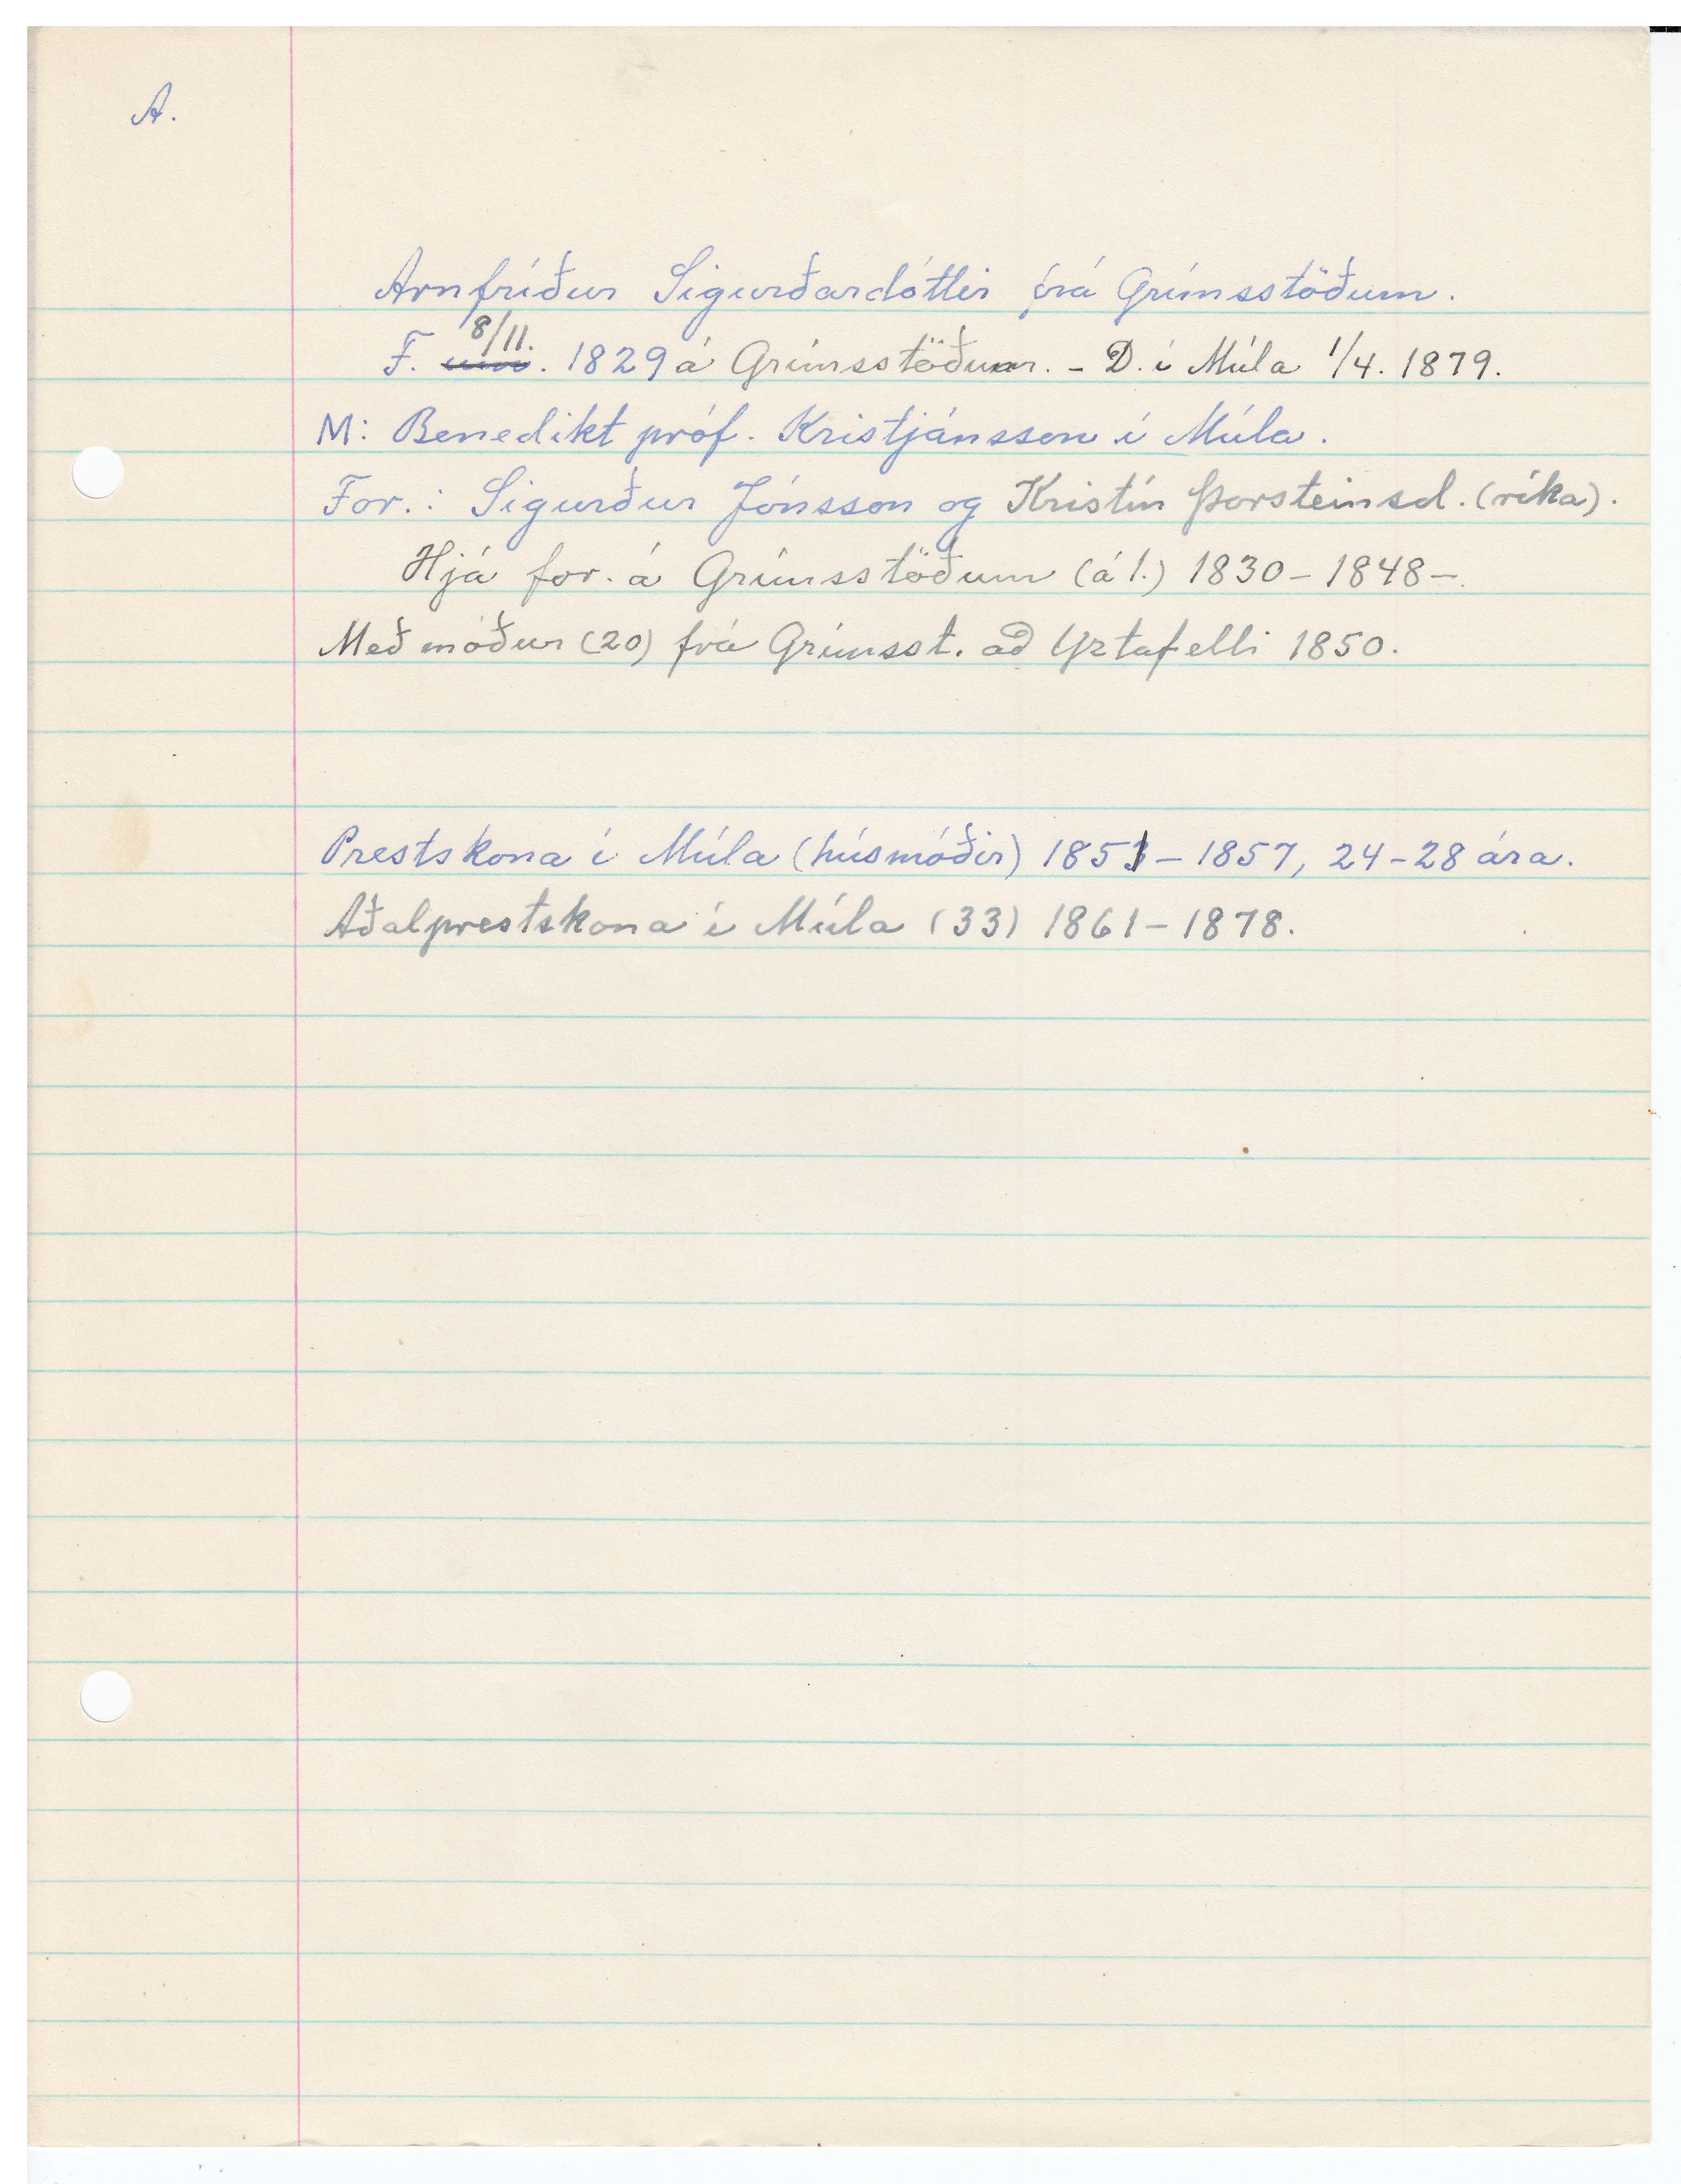 A.
Arnfríður Sigurðardóttir frá Grímsstöðum.
8/11.
F. um. 1829 á Grímsstöðum. - D. í Múla 1/4. 1879.
M: Benedikt próf. Kristjánsson í Múla.
For.: Sigurður Jónsson og Kristín Þorsteinsd. (ríka).
Hjá for. á Grímsstöðum (á 1.) 1830 - 1848 -
Með móður (20) frá Grímsst. að Yztafelli 1850.
Prestskona í Múla (húsmóðir) 1851 - 1857, 24 - 28 ára.
Aðalprestskona í Múla (33) 1861 - 1878.